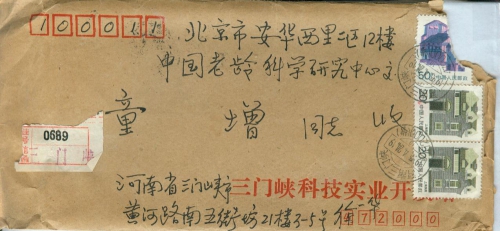 100011
北京市安华西里二区12楼
中国老龄科学研究中心
童增 同志 收
0689
三门峡
三门峡科技实业开
河南省三门峡市
黄河路南五街坊21楼3-5号 徐一华
472000
50分 中国人民邮政
20分 中国人民邮政
20分 中国人民邮政